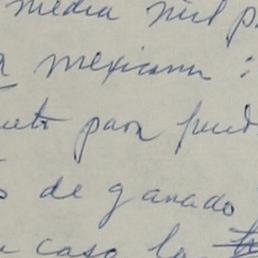 media mil p
mexicana :
para
s de ganado
caso la